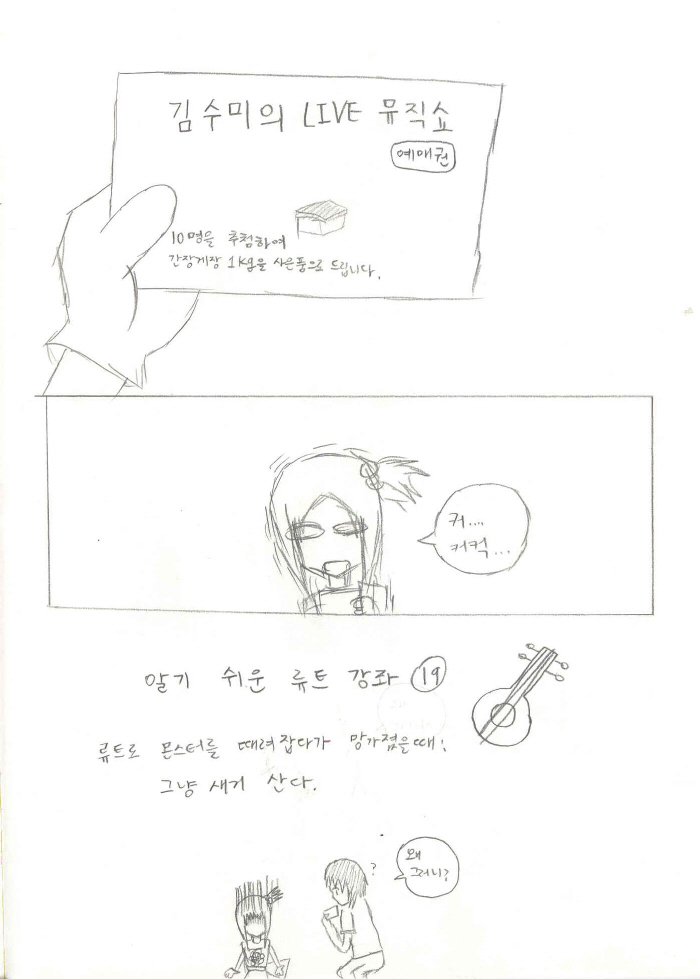 김수미의 LIVE 뮤직쇼
예매권
10명을 추첨하여
간장게장 1kg을 사은품으로 드립니다.
커....
커컥...
알기 쉬운 류트 강좌 19
류트로 몬스터를 때려잡다가 망가졌을때:
그냥 새거 산다.
?
왜
그러니?